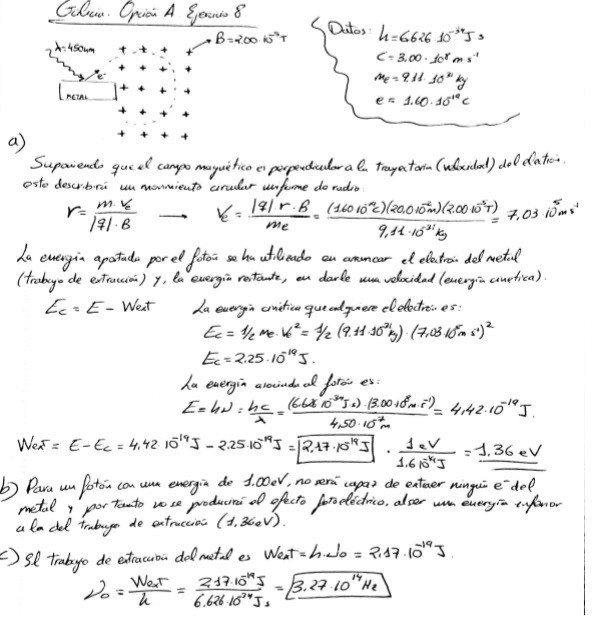 Galicia. Opción A Ejercicio 8
λ=450nm
B=2.00·10⁻⁵T
e⁻
METAL
Datos: h=6.626 10⁻³⁴ J s
c=3.00·10⁸ m s⁻¹
me=9.11·10⁻³¹ kg
e = 1.60·10⁻¹⁹ C
a)
Suponiendo que el campo magnético es perpendicular a la trayectoria (velocidad) del electrón.
este describirá un movimiento circular uniforme de radio.
r = m·Ve / |q|·B → Ve = |q| r·B / me = (1.60 10⁻¹⁹C)(20,0·10⁻²m)(2.00·10⁻⁵T) / 9,11·10⁻³¹ kg = 7,03·10⁵ m s⁻¹
La energía aportada por el fotón se ha utilizado en arrancar el electrón del metal
(trabajo de extracción) y, la energía restante, en darle una velocidad (energía cinética).
Ec = E - Wext La energía cinética que adquiere el electrón es:
Ec = 1/2 me·Ve² = 1/2 (9.11·10⁻³¹kg)·(7,03·10⁵m s⁻¹)²
Ec = 2.25·10⁻¹⁹ J.
La energía asociada al fotón es:
E = hν = hc/λ = (6.626 10⁻³⁴ J s)·(3.00·10⁸ m·s⁻¹) / 4,50·10⁻⁷m = 4,42·10⁻¹⁹ J.
Wext = E - Ec = 4,42·10⁻¹⁹ J - 2.25·10⁻¹⁹ J = 2,17·10⁻¹⁹ J · 1 eV / 1.6 10⁻¹⁹ J = 1,36 eV
b) Para un fotón con una energía de 1.00 eV, no será capaz de extraer ningún e⁻ del
metal y por tanto no se producirá el efecto fotoeléctrico, al ser una energía inferior
a la del trabajo de extracción (1,36 eV).
c) El trabajo de extracción del metal es Wext = h·ν₀ = 2,17·10⁻¹⁹ J.
ν₀ = Wext / h = 2,17·10⁻¹⁹ J / 6.626·10⁻³⁴ J s = 3.27·10¹⁴ Hz